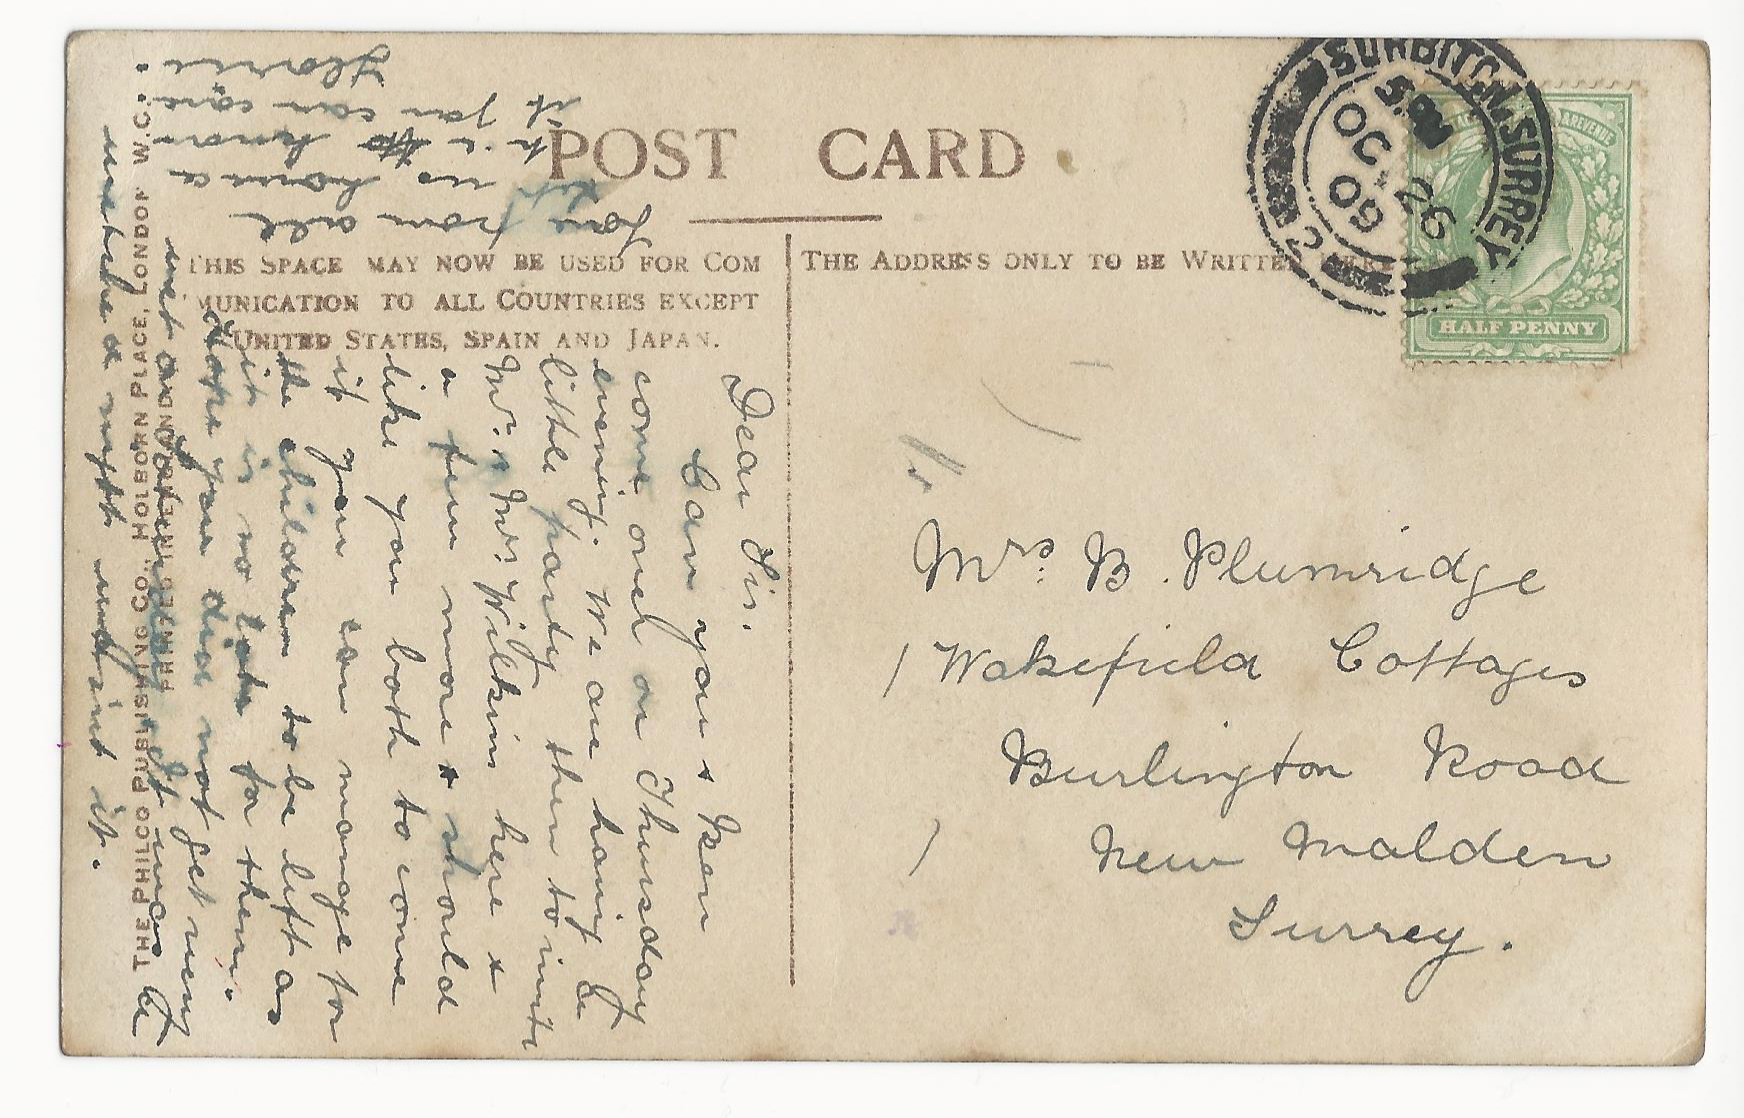 POST CARD
THIS SPACE MAY NOW BE USED FOR COM
MUNICATION TO ALL COUNTRIES EXCEPT
UNITED STATES, SPAIN AND JAPAN.
THE ADDRESS ONLY TO BE WRITTEN HERE
SURBITON. SURREY
OC 26
09
HALF PENNY
Mrs. B. Plumridge
1 Wakefield Cottages
Burlington Road
New Malden
Surrey.
Dear Sis.
Can you & Ben
come over on Thursday
evening. We are having a
little party then to invite
Mr. & Mrs. Wilkins here &
a few more & should
like you both to come
if you can manage for
the children to be left as
it is no late for them.
Hope you did not get very
wet on Saturday. It made a
me take a nights against it.
Love from all
Let us have a
to know
if you can come
Florrie.
THE PHILCO PUBLISHING CO., HOLBORN PLACE, LONDON W.C.
PRINTED IN ENGLAND